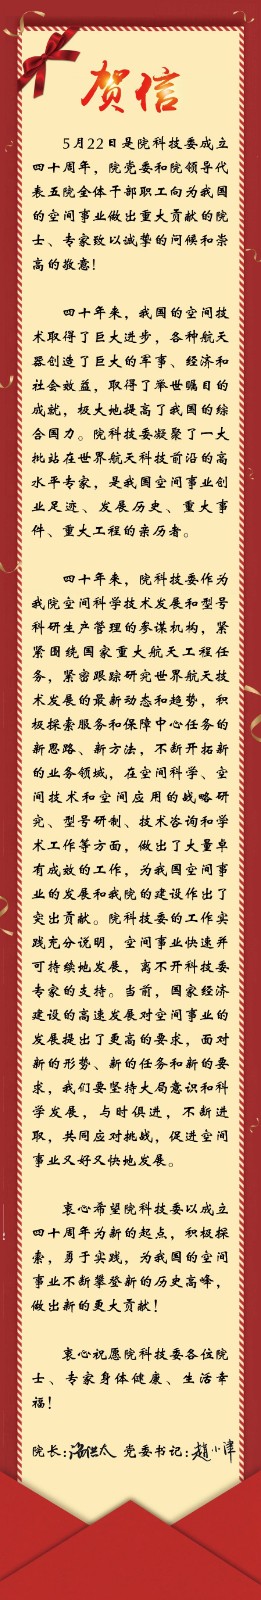 贺信
5月22日是院科技委成立
四十周年，院党委和院领导代
表五院全体干部职工向为我国
的空间事业做出重大贡献的院
士、专家致以诚挚的问候和崇
高的敬意！
四十年来，我国的空间技
术取得了巨大进步，各种航天
器创造了巨大的军事、经济和
社会效益，取得了举世瞩目的
成就，极大地提高了我国的综
合国力。院科技委凝聚了一大
批站在世界航天科技前沿的高
水平专家，是我国空间事业创
业足迹、发展历史、重大事
件、重大工程的亲历者。
四十年来，院科技委作为
我院空间科学技术发展和型号
科研生产管理的参谋机构，紧
紧围绕国家重大航天工程任
务，紧密跟踪研究世界航天技
术发展的最新动态和趋势，积
极探索服务和保障中心任务的
新思路、新方法，不断开拓新
的业务领域，在空间科学、空
间技术和空间应用的战略研
究、型号研制、技术咨询和学
术工作等方面，做出了大量卓
有成效的工作，为我国空间事
业的发展和我院的建设作出了
突出贡献。院科技委的工作实
践充分说明，空间事业快速并
可持续地发展，离不开科技委
专家的支持。当前，国家经济
建设的高速发展对空间事业的
发展提出了更高的要求，面对
新的形势、新的任务和新的要
求，我们要坚持大局意识和科
学发展，与时俱进，不断进
取，共同应对挑战，促进空间
事业又好又快地发展。
衷心希望院科技委以成立
四十周年为新的起点，积极探
索，勇于实践，为我国的空间
事业不断攀登新的历史高峰，
做出新的更大贡献！
衷心祝愿院科技委各位院
士、专家身体健康、生活幸
福！
院长： 党委书记：赵小津